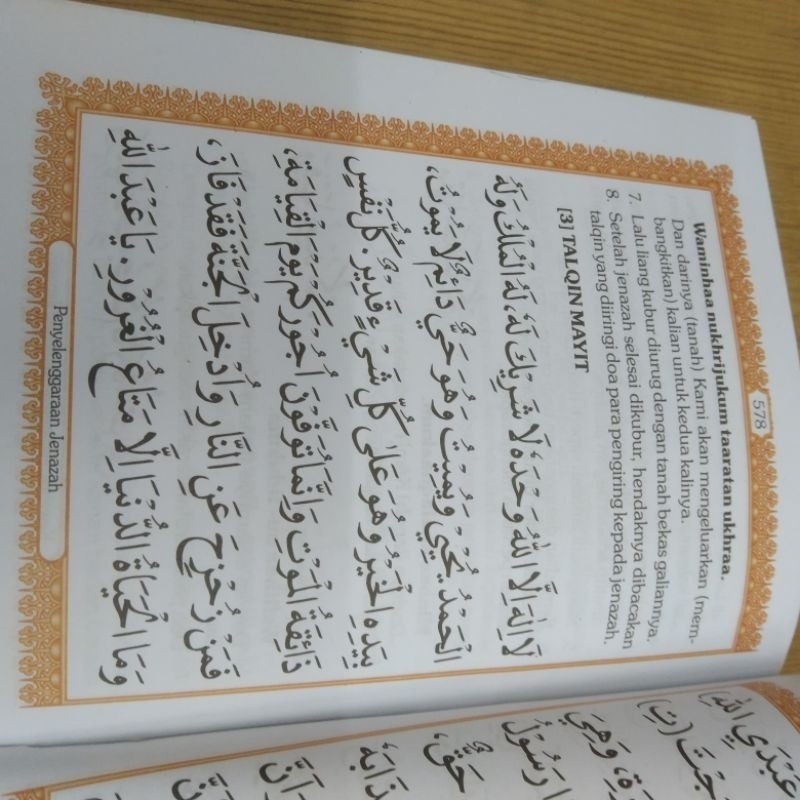 578
Waminhaa nukhrijukum taaratan ukhraa.
Dan darinya (tanah) Kami akan mengeluarkan (mem-
bangkitkan) kalian untuk kedua kalinya.
7. Lalu liang kubur diurug dengan tanah bekas galiannya.
8. Setelah jenazah selesai dikubur, hendaknya dibacakan
talqin yang diiringi doa para pengiring kepada jenazah.
[3] TALQIN MAYIT
لَا اِلٰهَ اِلَّا اللّٰهُ وَحْدَهُ لَا شَرِيْكَ لَهُ، لَهُ الْمُلْكُ وَلَهُ
الْحَمْدُ يُحْيِيْ وَيُمِيْتُ وَهُوَ حَيٌّ دَائِمٌ لَا يَمُوْتُ،
بِيَدِهِ الْخَيْرُ وَهُوَ عَلٰى كُلِّ شَيْءٍ قَدِيْرٌ. كُلُّ نَفْسٍ
ذَائِقَةُ الْمَوْتِ وَاِنَّمَا تُوَفَّوْنَ اُجُوْرَكُمْ يَوْمَ الْقِيَامَةِ،
فَمَنْ زُحْزِحَ عَنِ النَّارِ وَاُدْخِلَ الْجَنَّةَ فَقَدْ فَازَ،
وَمَا الْحَيَاةُ الدُّنْيَا اِلَّا مَتَاعُ الْغُرُوْرِ. يَا عَبْدَ اللّٰهِ
Penyelenggaraan Jenazah
عَبْدَيِ اللّٰهِ
وَهِيَ
رَسُوْلُ
حَقٌّ،